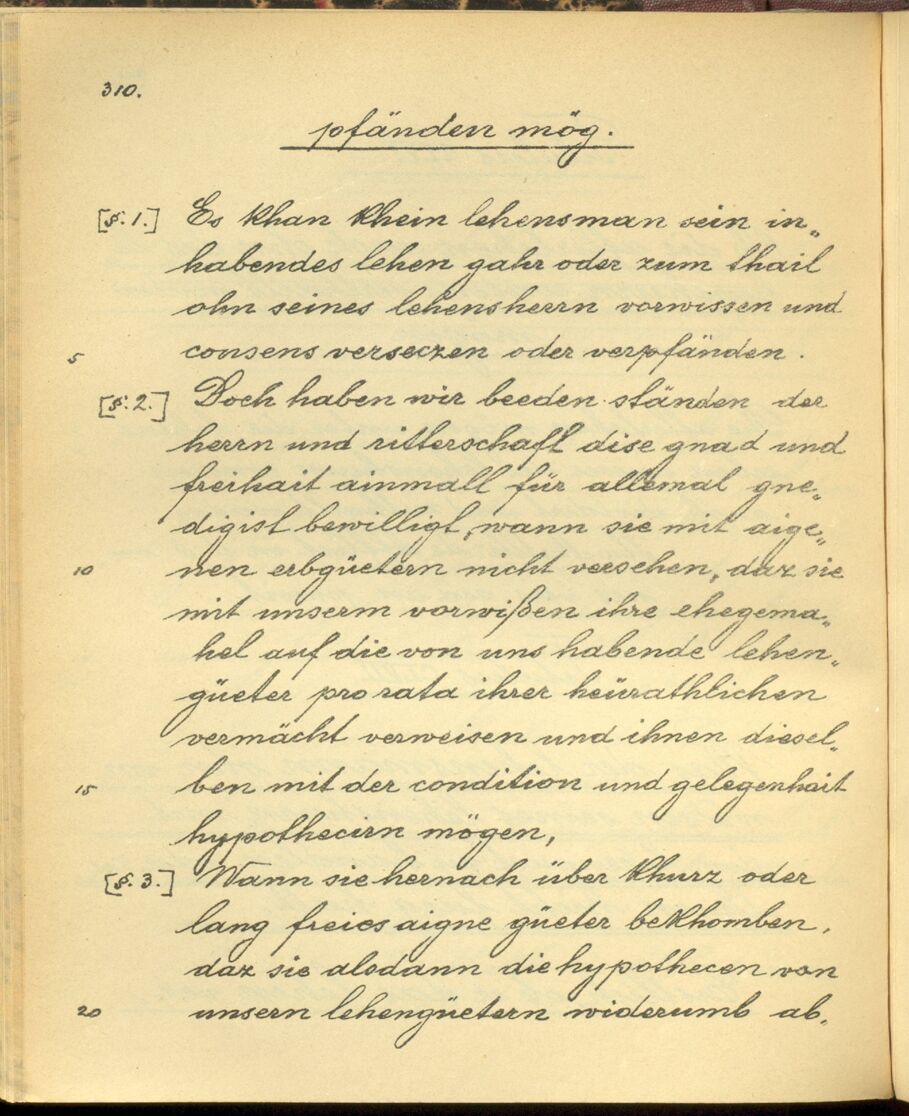 310.
pfänden mög.
[§. 1.] Es khan khein lehensman sein in„
habendes lehen gahr oder zum thail
ohn seines lehensherrn vorwissen und
5 consens verseczen oder verpfänden.
[§. 2.] Doch haben wir beeden ständen der
herrn und ritterschafft dise gnad und
freihait ainmall für allemal gne„
digist bewilligt, wann sie mit aige„
10 nen erbgüetern nicht versehen, daz sie
mit unserm vorwißen ihre ehegema„
hel auf die von uns habende lehen„
güeter pro rata ihrer heürathlichen
vermächt verweisen und ihnen diesel„
15 ben mit der condition und gelegenhait
hypothecirn mögen,
[§. 3.] Wann sie hernach über khurz oder
lang freies aigne güeter bekhomben,
daz sie alsdann die hypothecen von
20 unsern lehengüetern widerumb ab„